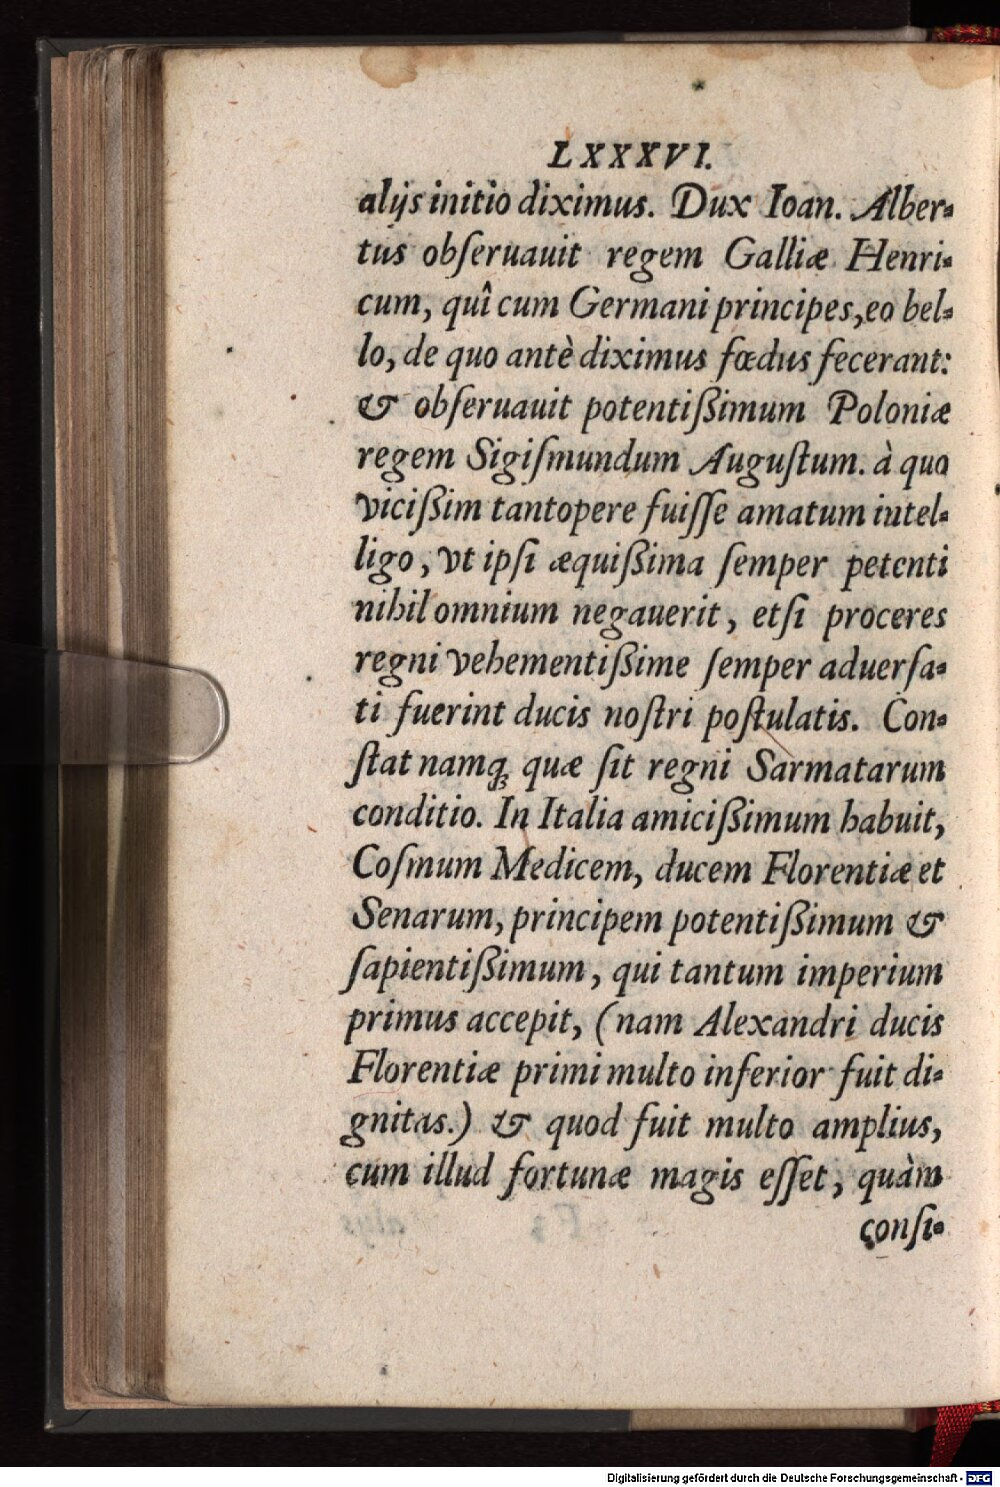 LXXXVI.
alijs initio diximus. Dux Ioan. Alber-
tus obſeruauit regem Galliæ Henri-
cum, quî cum Germani principes, eo bel-
lo, de quo antè diximus fœdus fecerant:
& obſeruauit potentißimum Poloniæ
regem Sigiſmundum Auguſtum. à quo
vicißim tantopere fuiſſe amatum intel-
ligo, vt ipſi æquißima ſemper petenti
nihil omnium negauerit, etſi proceres
regni vehementißime ſemper aduerſa-
ti fuerint ducis noſtri poſtulatis. Con-
ſtat namq; quæ ſit regni Sarmatarum
conditio. In Italia amicißimum habuit,
Coſmum Medicem, ducem Florentiæ et
Senarum, principem potentißimum &
ſapientißimum, qui tantum imperium
primus accepit, (nam Alexandri ducis
Florentiæ primi multo inferior fuit di-
gnitas.) & quod fuit multo amplius,
cum illud fortunæ magis eſſet, quàm
conſi-
Digitalisierung gefördert durch die Deutsche Forschungsgemeinschaft - DFG